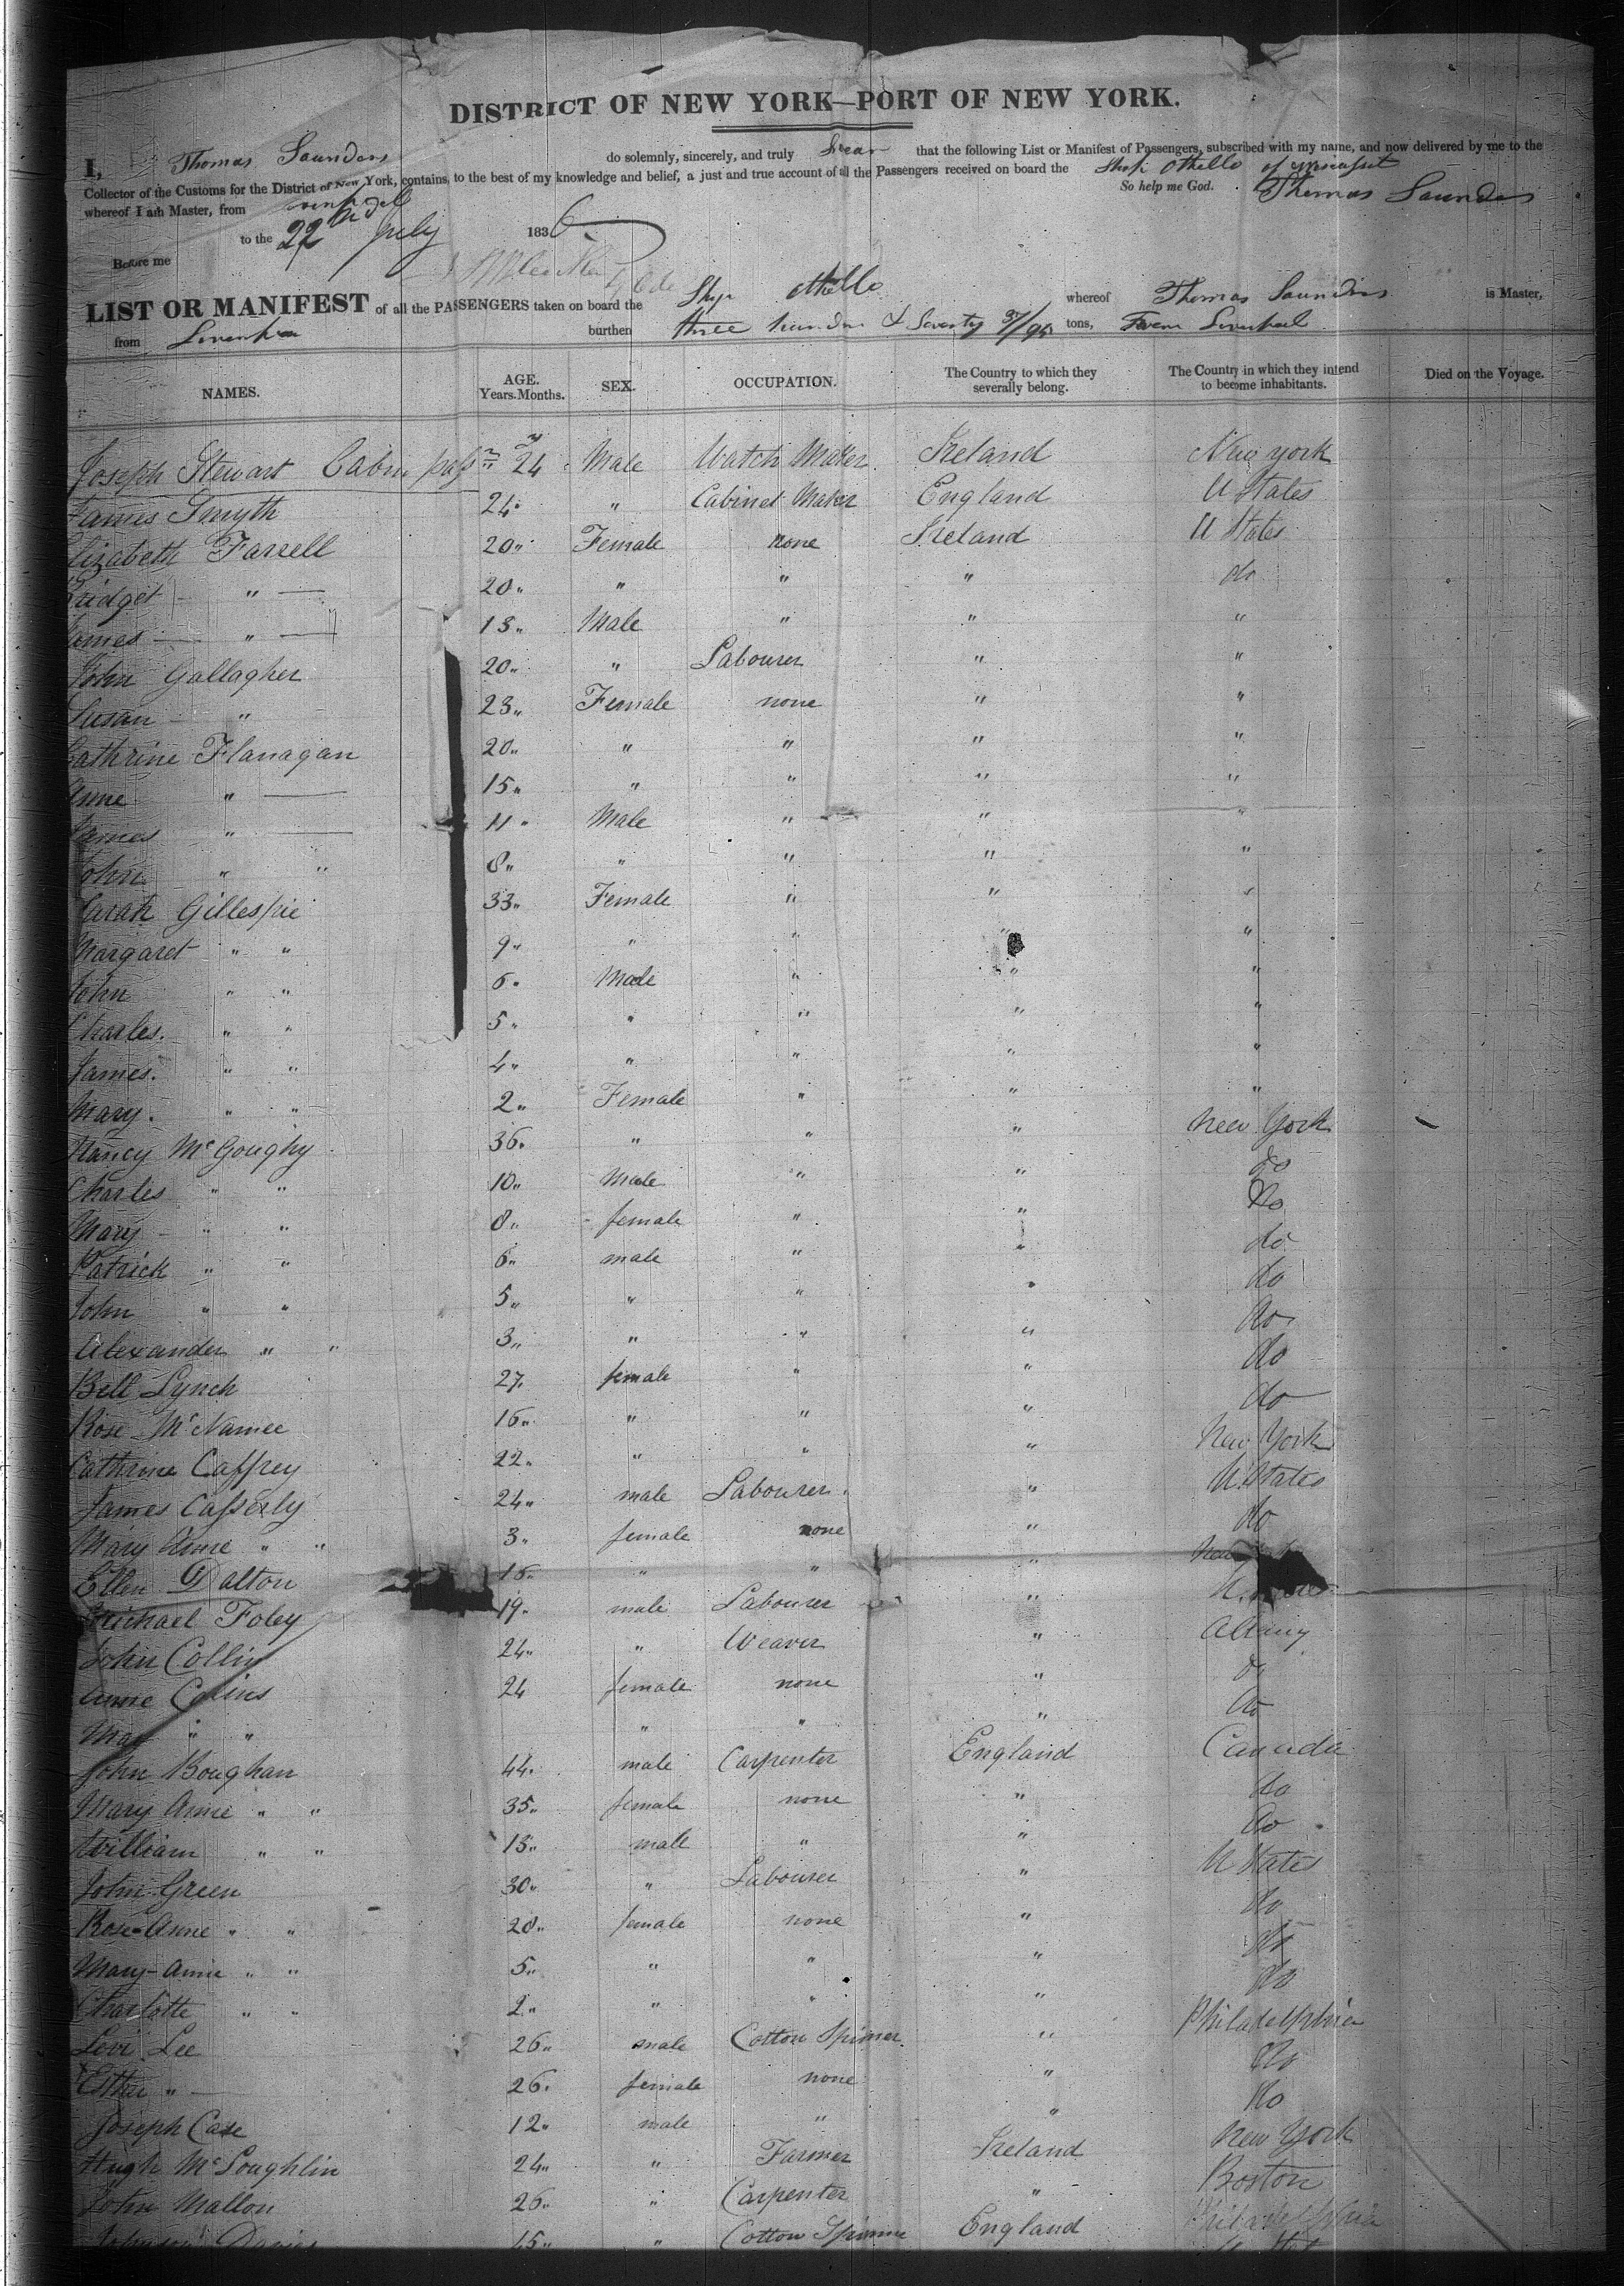 DISTRICT OF NEW YORK—PORT OF NEW YORK.
I, Thomas Saunders do solemnly, sincerely, and truly Swear that the following List or Manifest of Passengers, subscribed with my name, and now delivered by me to the
Collector of the Customs for the District of New York, contains, to the best of my knowledge and belief, a just and true account of all the Passengers received on board the Ship Othello of
whereof I am Master, from So help me God. Thomas Saunders
to the 22nd July 1836
Before me
LIST OR MANIFEST of all the PASSENGERS taken on board the Ship Othello whereof Thomas Saunders is Master,
from burthen three hundred & Seventy 37/95 tons, From Liverpool
NAMES. AGE. Years. Months. SEX. OCCUPATION. The Country to which they severally belong. The Country in which they intend to become inhabitants. Died on the Voyage.
Joseph Stewart Cabin pass 24 Male Watch Maker Ireland New York
James Smyth 24 " Cabinet Maker England U States
Elizabeth Farrell 20 " Female none Ireland U States
Bridget " 20 " " " " do
James " 13 " Male " " "
John Gallagher 20 " " Labourer " "
Susan " 23 " Female none " "
Cathrine Flanagan 20 " " " " "
Anne " 15 " " " " "
James " 11 " Male " " "
John " " 8 " " " " "
Sarah Gillespie 33 " Female " " "
Margaret " " 9 " " " " "
John " " 6 " Male " " "
Charles. " " 5 " " " " "
James. " " 4 " " " " "
Mary. " " 2 " Female " " "
Nancy McGoughy 36 " " " " New York
Charles " " 10 " Male " " do
Mary " " 8 " female " " Do
Patrick " " 6 " male " " do
John " " 5 " " " " do
Alexander " " 3 " " " " do
Bell Lynch 27 female " " do
Rose McNamee 16 " " " " do
Cathrine Caffrey 22 " " " " New York
James Casserly 24 " male Labourer " U States
Mary Anne " " 3 " female none " do
Ellen Dalton 16 " " " "
Michael Foley 19 " male Labourer "
John Collin 24 " " Weaver " Albany
Anne Colins 24 female none " do
May " " " " " do
John Boughan 44 " male Carpenter England Canada
Mary Anne " " 35 " female none " do
William " " 13 " male " " do
John Green 30 " " Labourer " U States
Rose-Anne " " 28 " female none " do
Mary-Anne " " 5 " " " " do
Charlotte " " 2 " " " " do
Levi Lee 26 " male Cotton Spinner " Philadelphia
Esther " 26 " female none " do
Joseph Case 12 " male " " do
Hugh McLoughlin 24 " " Farmer Ireland New York
John Mallon 26 " " Carpenter " Boston
Johnson Davies 45 " " Cotton Spinner England Philadelphia